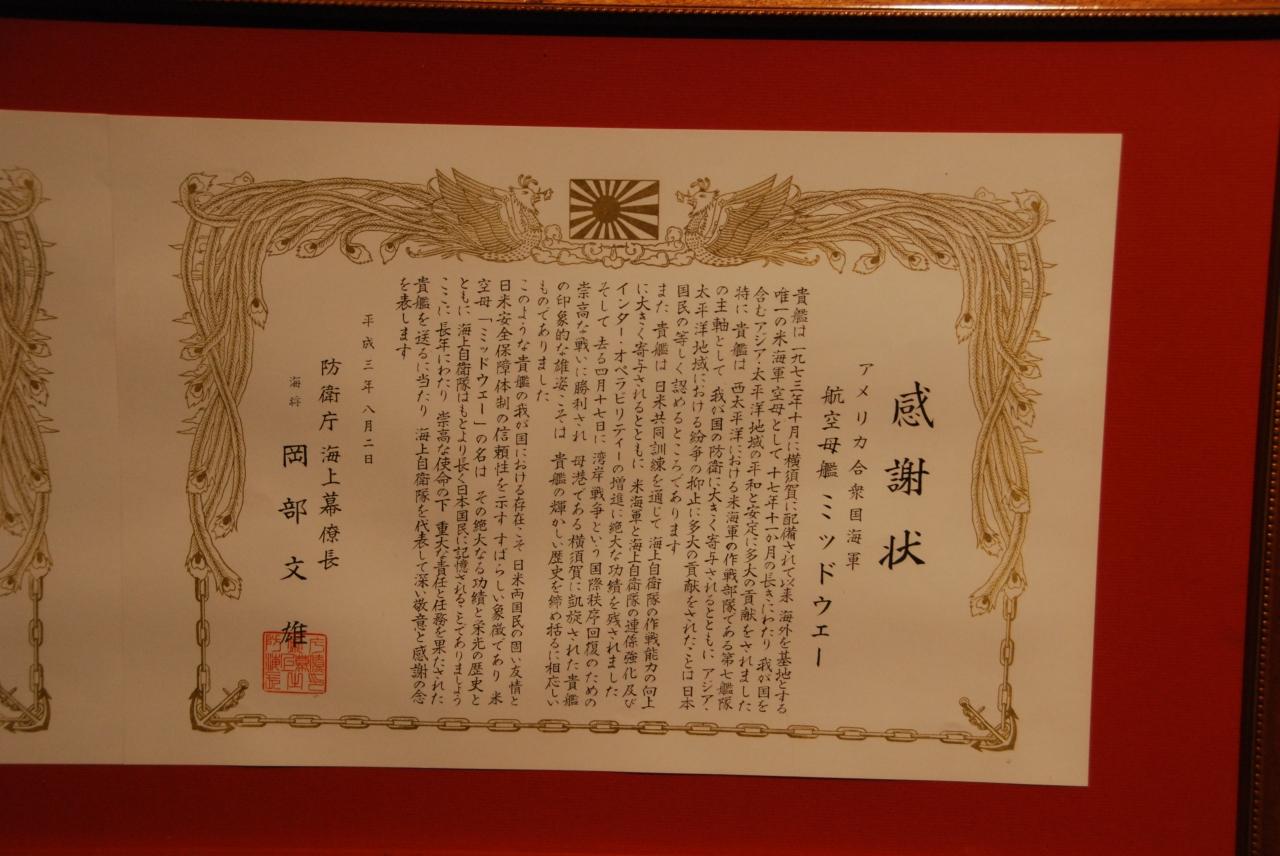 感謝状
アメリカ合衆国海軍
航空母艦 ミッドウェー
貴艦は一九七三年十月に横須賀に配備されて以来 海外を基地とする
唯一の米海軍空母として 十七年十一か月の長きにわたり 我が国を
含むアジア・太平洋地域の平和と安定に多大の貢献をされました
特に 貴艦は 西太平洋における米海軍の作戦部隊である第七艦隊
の主軸として 我が国の防衛に大きく寄与されるとともに アジア・
太平洋地域における紛争の抑止に多大の貢献をされたことは 日本
国民の等しく認めるところであります
また 貴艦は 日米共同訓練を通じて 海上自衛隊の作戦能力の向上
に大きく寄与されるとともに 米海軍と海上自衛隊の連係強化 及び
インター・オペラビリティーの増進に絶大な功績を残されました
そして 去る四月十七日に 湾岸戦争という国際秩序回復のための
崇高な戦いに勝利され 母港である横須賀に凱旋された貴艦
の印象的な雄姿こそは 貴艦の輝かしい歴史を締め括るに相応しい
ものでありました
このような貴艦の我が国における存在こそ 日米両国民の固い友情と
日米安全保障体制の信頼性を示す すばらしい象徴であり 米
空母「ミッドウェー」の名は その絶大なる功績と栄光の歴史と
ともに 海上自衛隊はもとより長く日本国民に記憶されることでありましょう
ここに 長年にわたり 崇高な使命の下 重大な責任と任務を果たされた
貴艦を送るに当たり 海上自衛隊を代表して深い敬意と感謝の念
を表します
平成三年八月二日
防衛庁 海上幕僚長
海将 岡部文雄